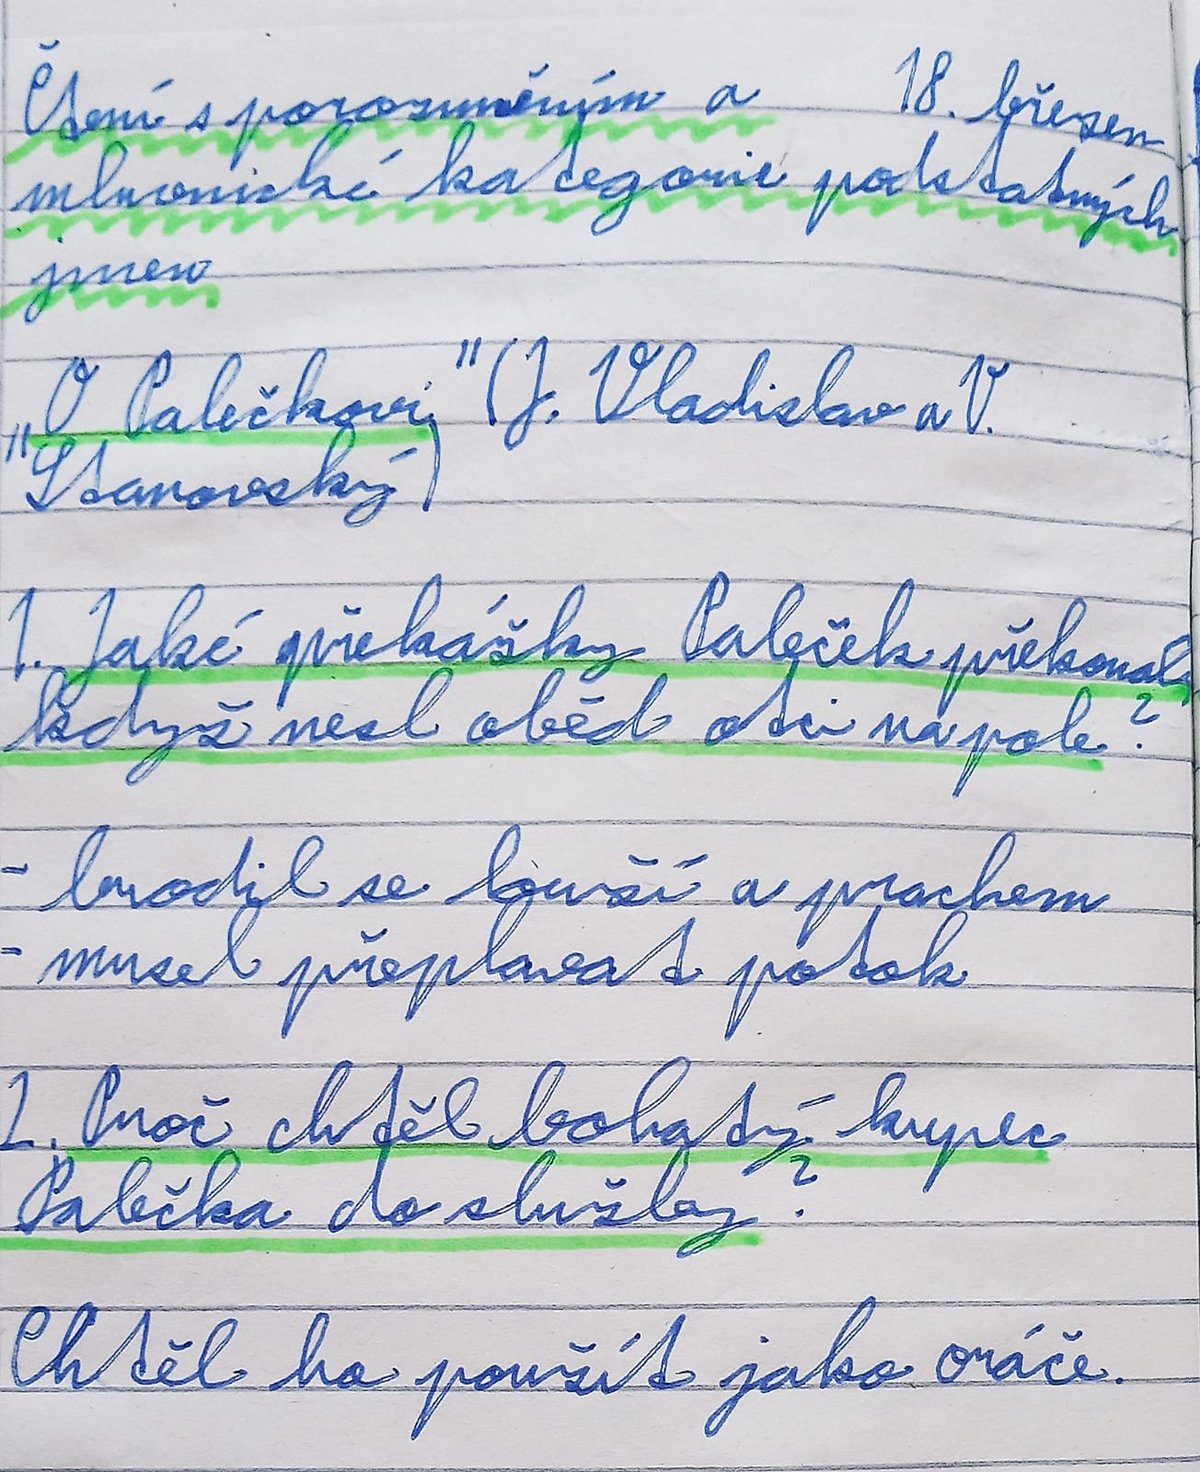 Čtení s porozuměním a 18. březen
mluvnické kategorie podstatných
jmen
"O Palečkovi" (J. Vladislav a V.
Stanovský)
1. Jaké překážky Paleček překonal,
když nesl oběd otci na pole?
- brodil se bouří a prachem
- musel přeplavat potok
2. Proč chtěl bohatý kupec
Palečka do služby?
Chtěl ho použít jako oráče.